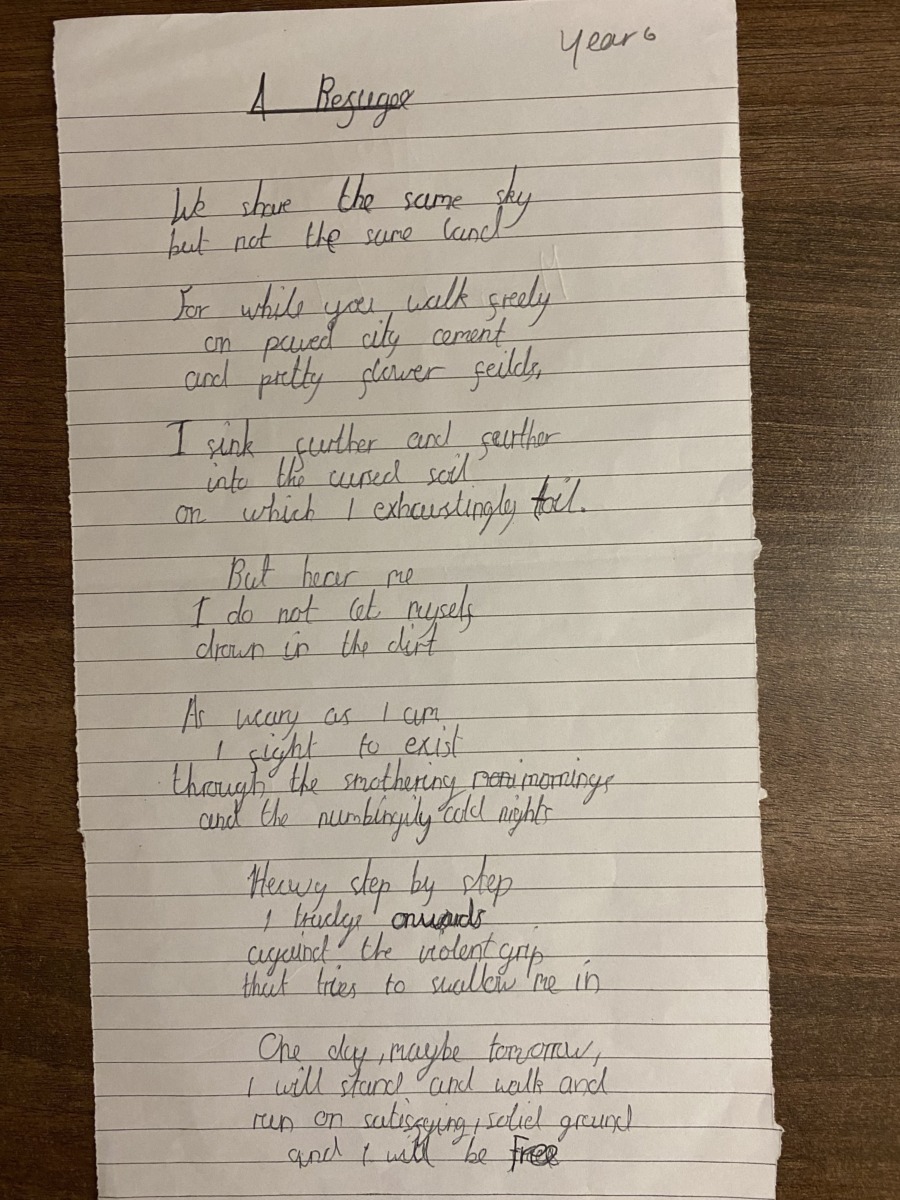 Year 6
A Refugee
We share the same sky
but not the same land
For while you walk freely
on paved city cement
and pretty flower feilds,
I sink further and further
into the cursed soil
on which I exhaustingly toil.
But hear me
I do not let myself
drown in the dirt
As weary as I am
I fight to exist
through the smothering mornings
and the numbingily cold nights
Heavy step by step
I trudge onwards
against the violent grip
that tries to swallow me in
One day, maybe tomorrow,
I will stand and walk and
run on satisfying, solid ground
and I will be free